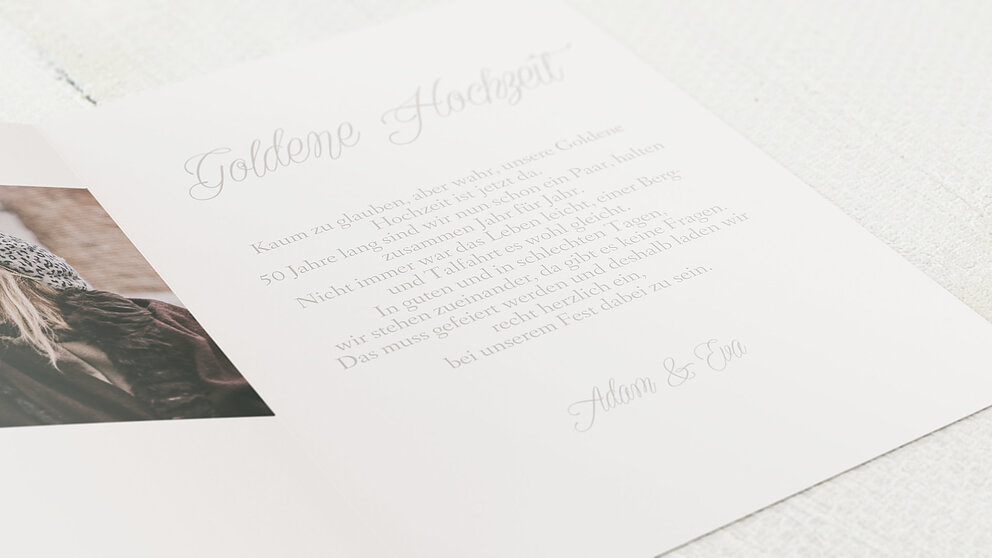 Goldene Hochzeit
Kaum zu glauben, aber wahr, unsere Goldene
Hochzeit ist jetzt da.
50 Jahre lang sind wir nun schon ein Paar, halten
zusammen Jahr für Jahr.
Nicht immer war das Leben leicht, einer Berg-
und Talfahrt es wohl gleicht.
In guten und in schlechten Tagen,
wir stehen zueinander, da gibt es keine Fragen.
Das muss gefeiert werden und deshalb laden wir
recht herzlich ein,
bei unserem Fest dabei zu sein.
Adam & Eva